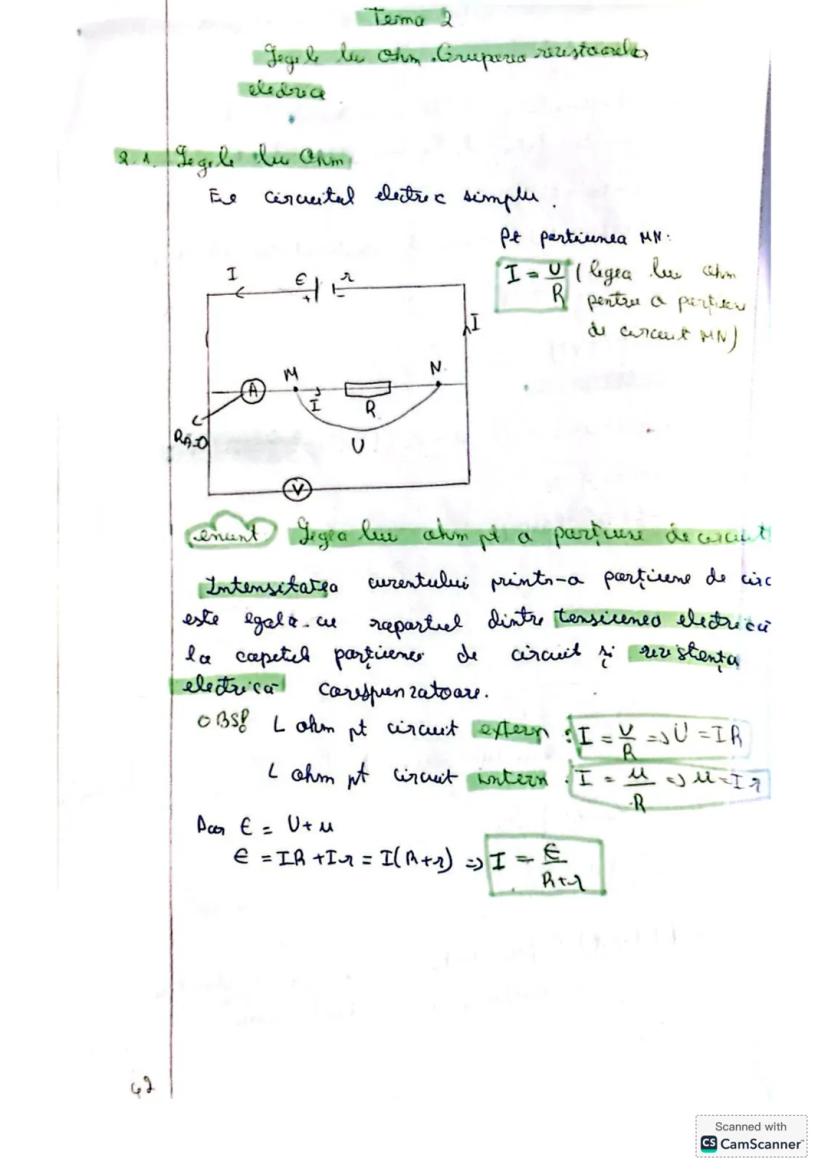 Tema 2
Legile lui Ohm. Gruparea rezistoarelor
electrice
2.1. Legile lui Ohm
Fie circuitul electric simplu.
pt portiunea MN:
I = U/R (legea lui Ohm
pentru o porțiune
de circuit MN)
I
E
r
+
-
I
A
M
I
R
N
RA≃0
U
V
enunt Legea lui ohm pt o porțiune de circuit
Intensitatea curentului printr-o porțiune de circ
este egală cu raportul dintre tensiunea electrică
la capetul porțiunei de circuit și rezistența
electrică corespunzatoare.
OBS! L ohm pt circuit extern : I = U/R => U = IR
L ohm pt circuit intern : I = u/R => u = Ir
Dar E = U+u
E = IR + Ir = I(R+r) => I = E/R+r
Scanned with
CS CamScanner